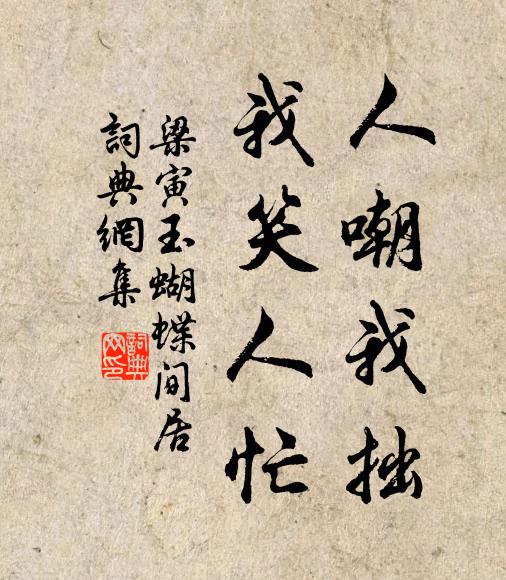 人嘲我拙
我笑人忙
梁寅玉蝴蝶间居
詞典網集
詞典
网印